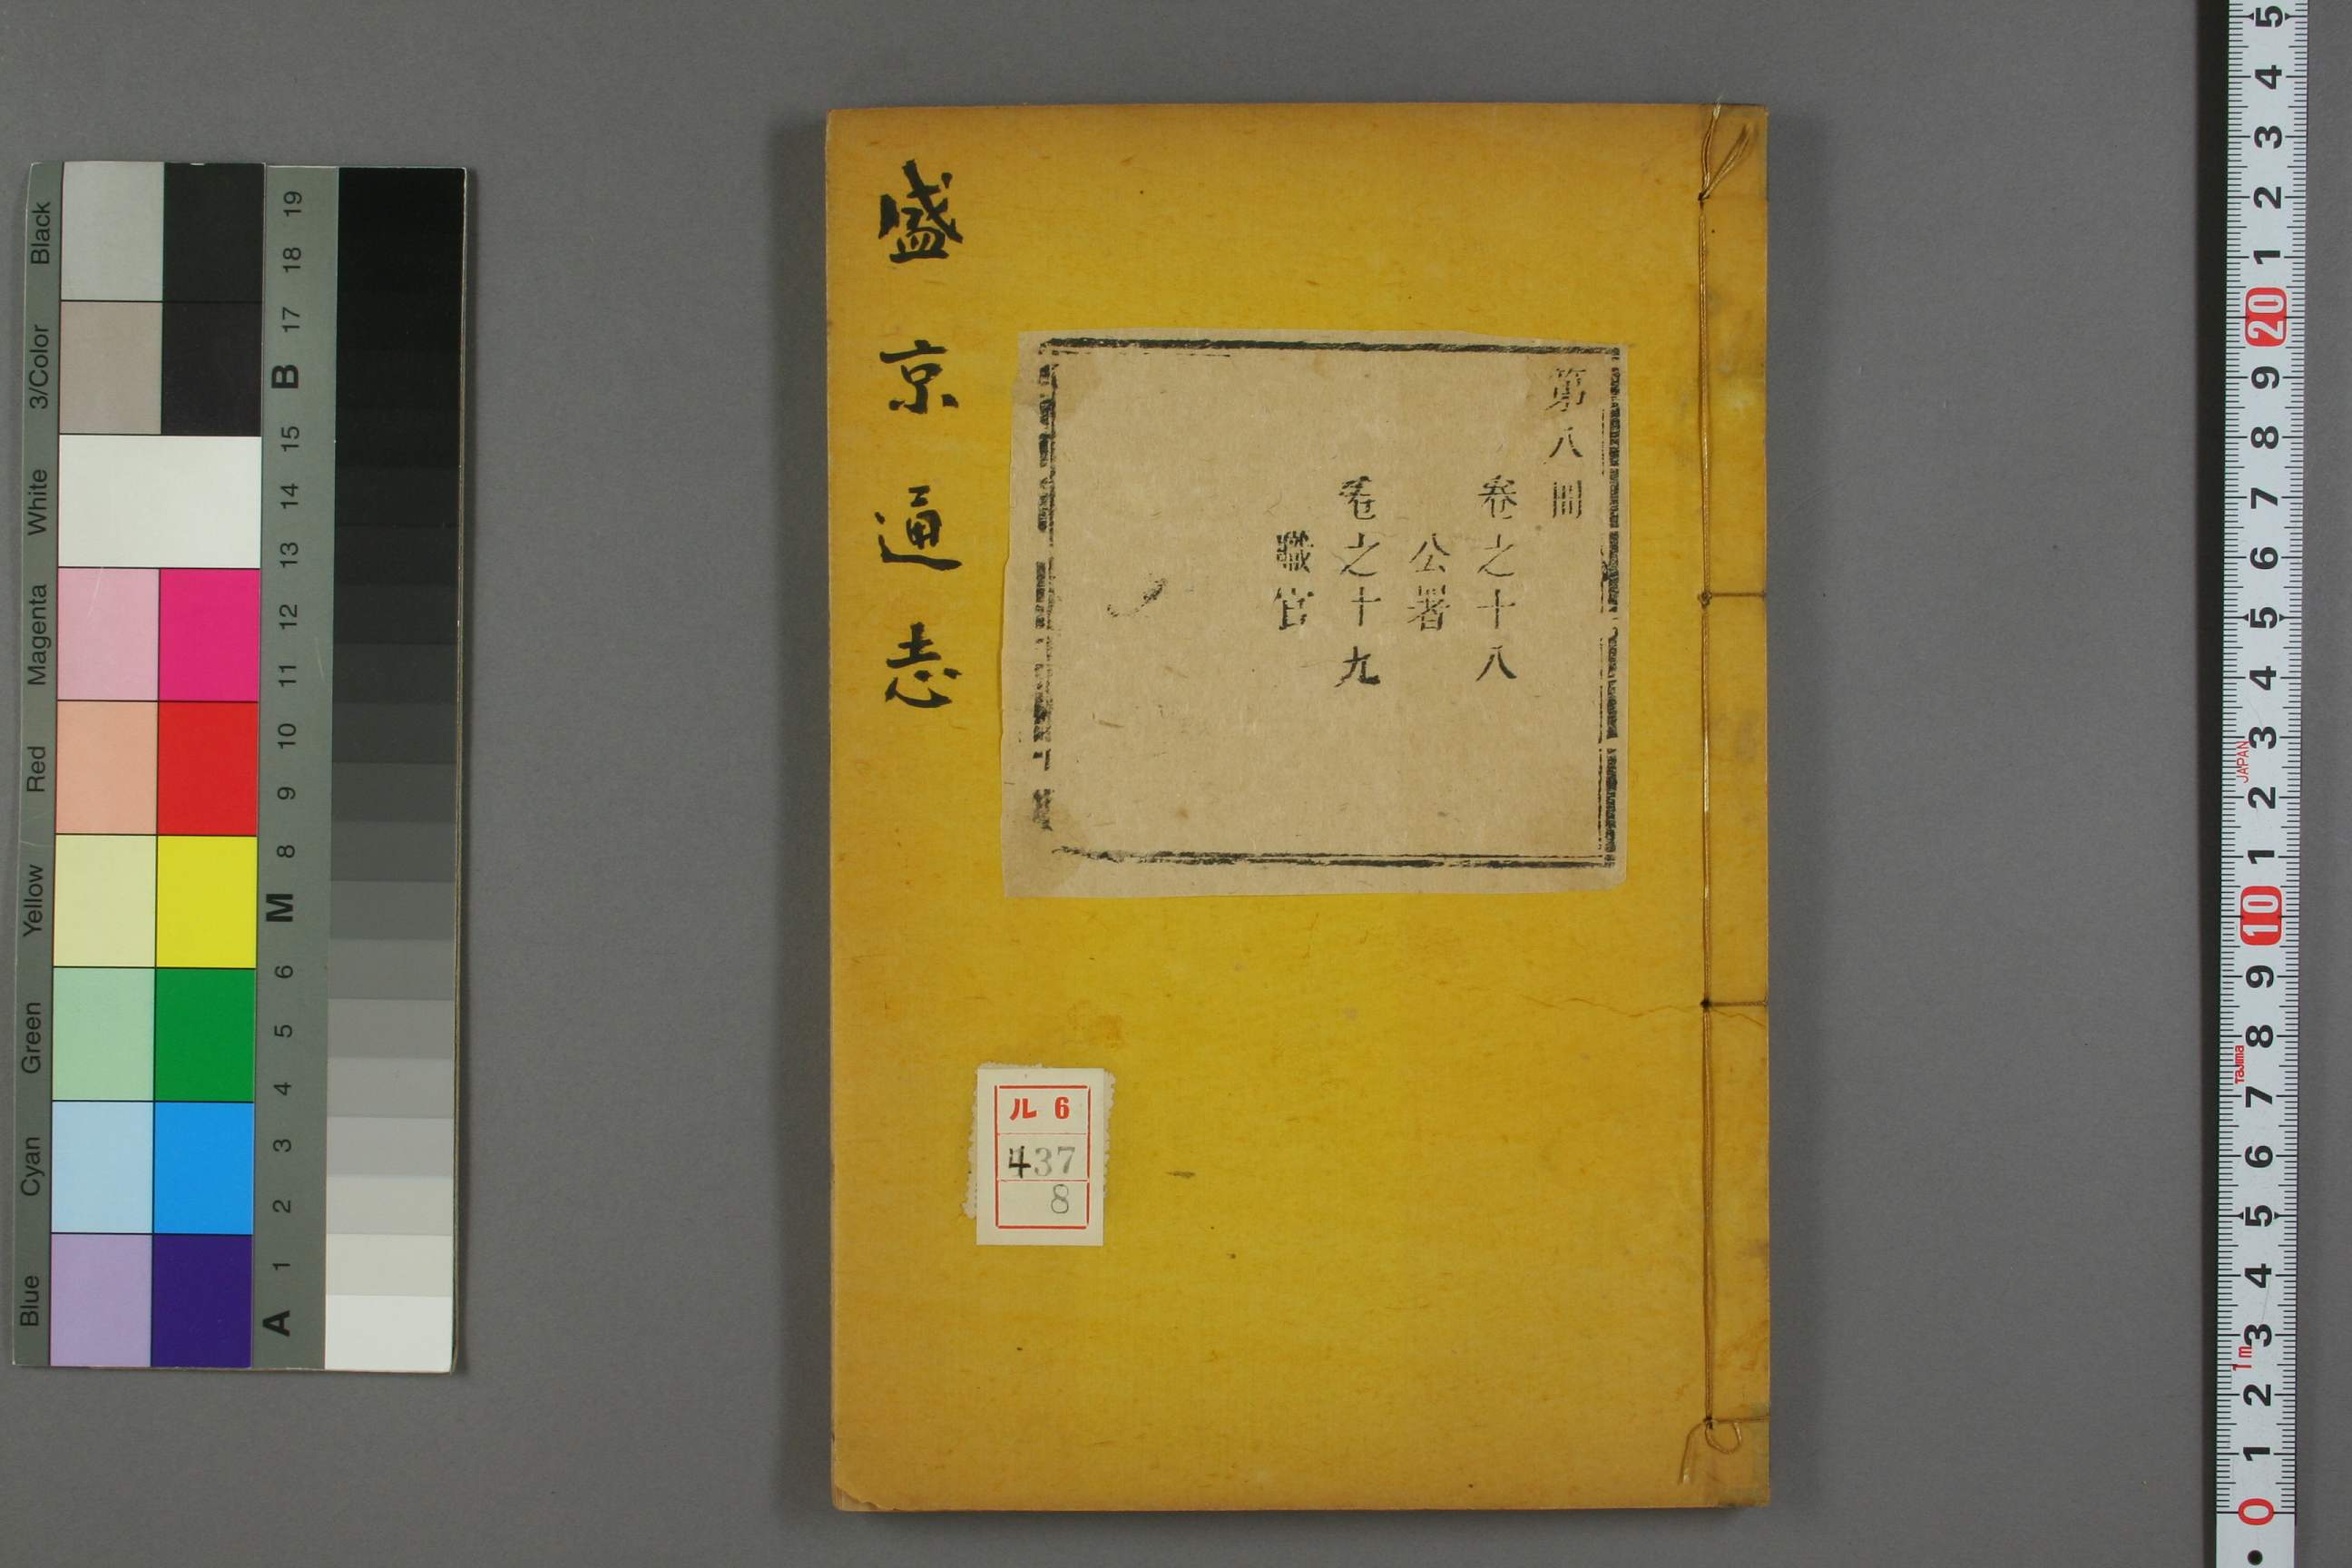 盛京通志
第八冊
卷之十八
公署
卷之十九
職官
ル 6
437
8
Black
3/Color
White
Magenta
Red
Yellow
Green
Cyan
Blue
19
18
17
B
15
14
13
12
11
10
9
8
M
6
5
4
3
2
1
A
5
4
3
2
1
20
9
8
7
6
5
4
3
JAPAN
2
1
10
9
8
Tajima
7
6
5
4
3
1m
2
1
0